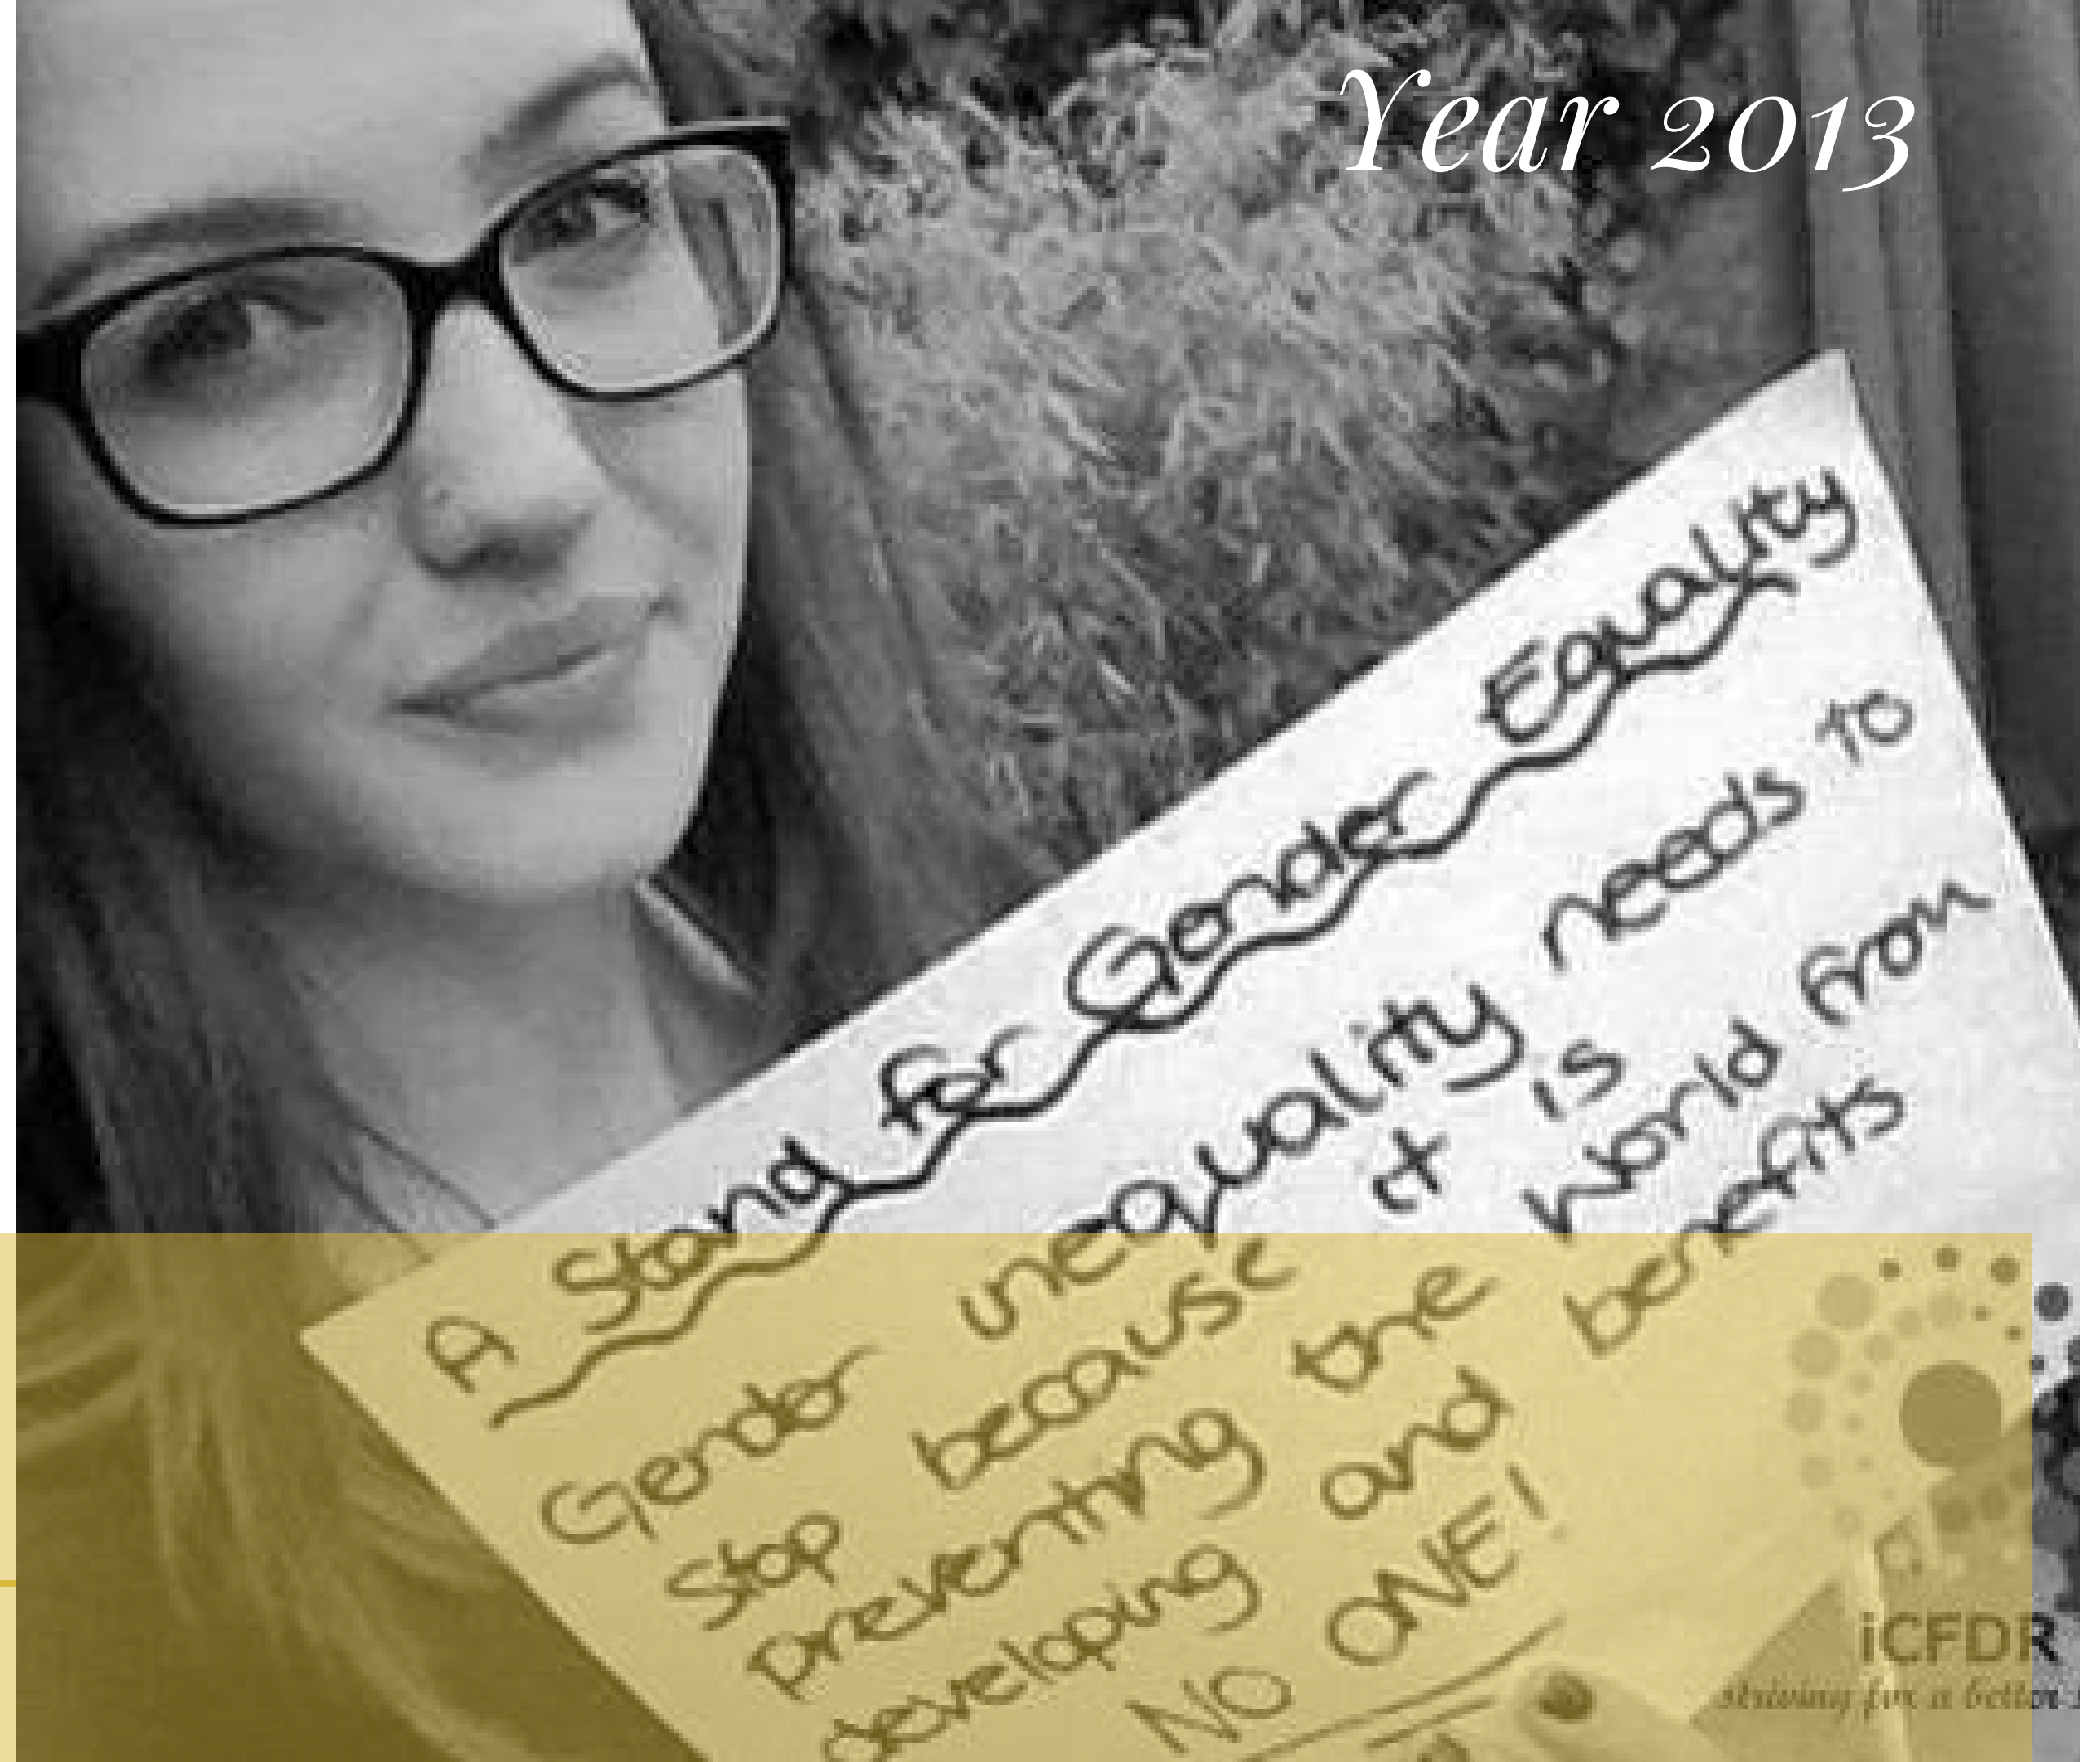 Year 2013
A Stand for Gender Equality
Gender inequality needs to
Stop because it is
preventing the World from
developing and benefits
NO ONE!
iCFDR
striving for a better